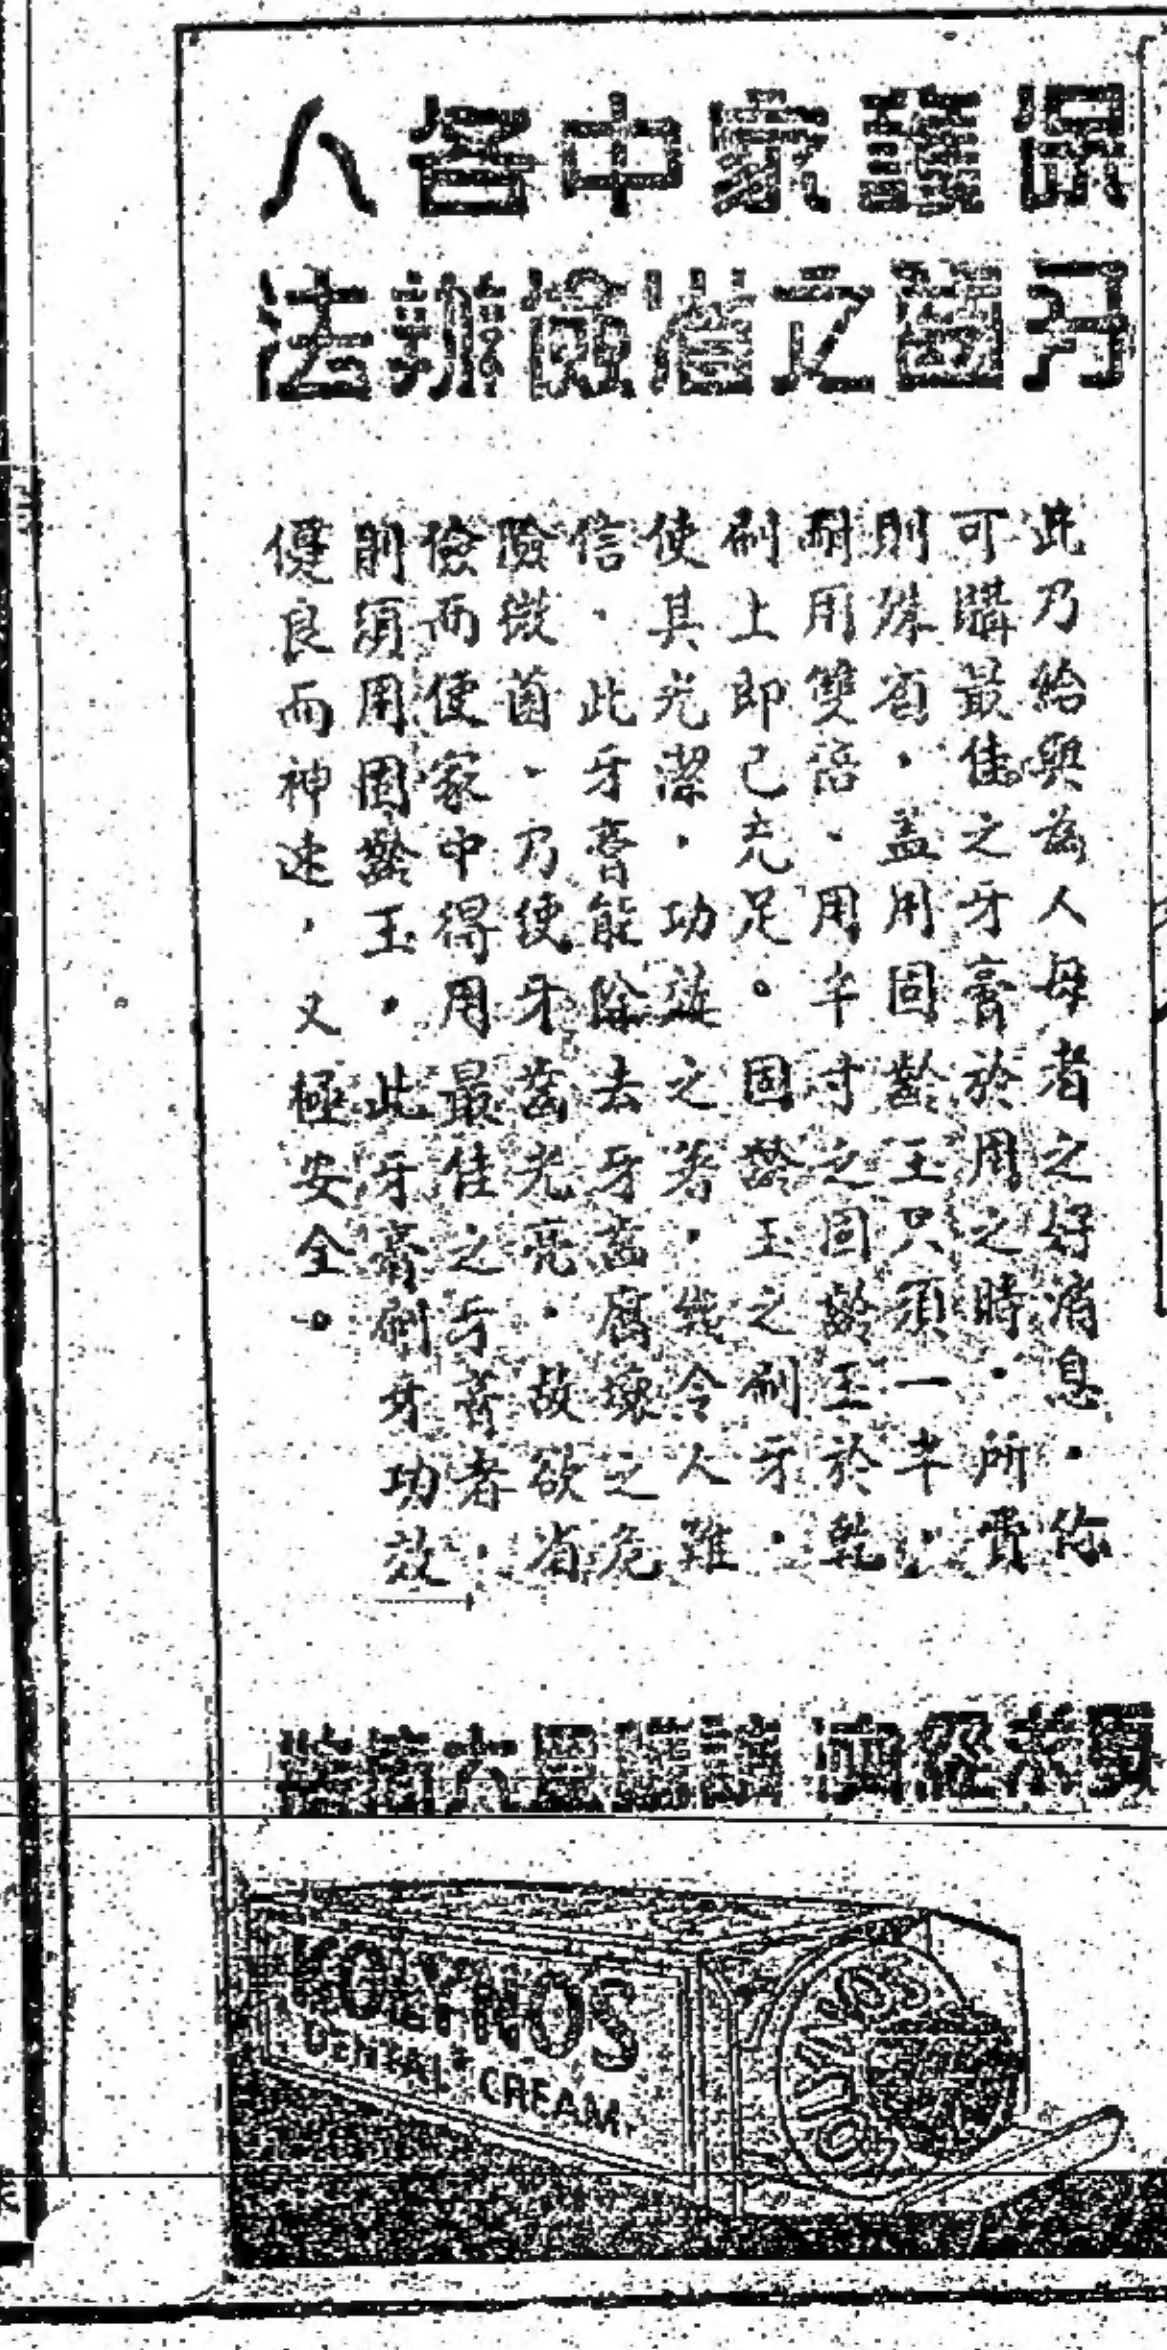 保護家中各人
牙齒之省儉辦法
此乃給與為人母者之好消息．你
可購最佳之牙膏於用之時．所費
則殊省．蓋用固齡玉只須一半．
耐用雙倍．用半寸之固齡玉於乾
刷上即已充足。固齡玉之刷牙．
使其光潔．功效之著．幾令人難
信．此牙膏能除去牙齒腐壞之危
險微菌．乃使牙齒光亮．故欲省
儉而使家中得用最佳之牙膏者．
則須用固齡玉．此牙膏刷牙功效
優良而神速，又極安全。
KOLYNOS
DENTAL CREAM
KOLYNOS